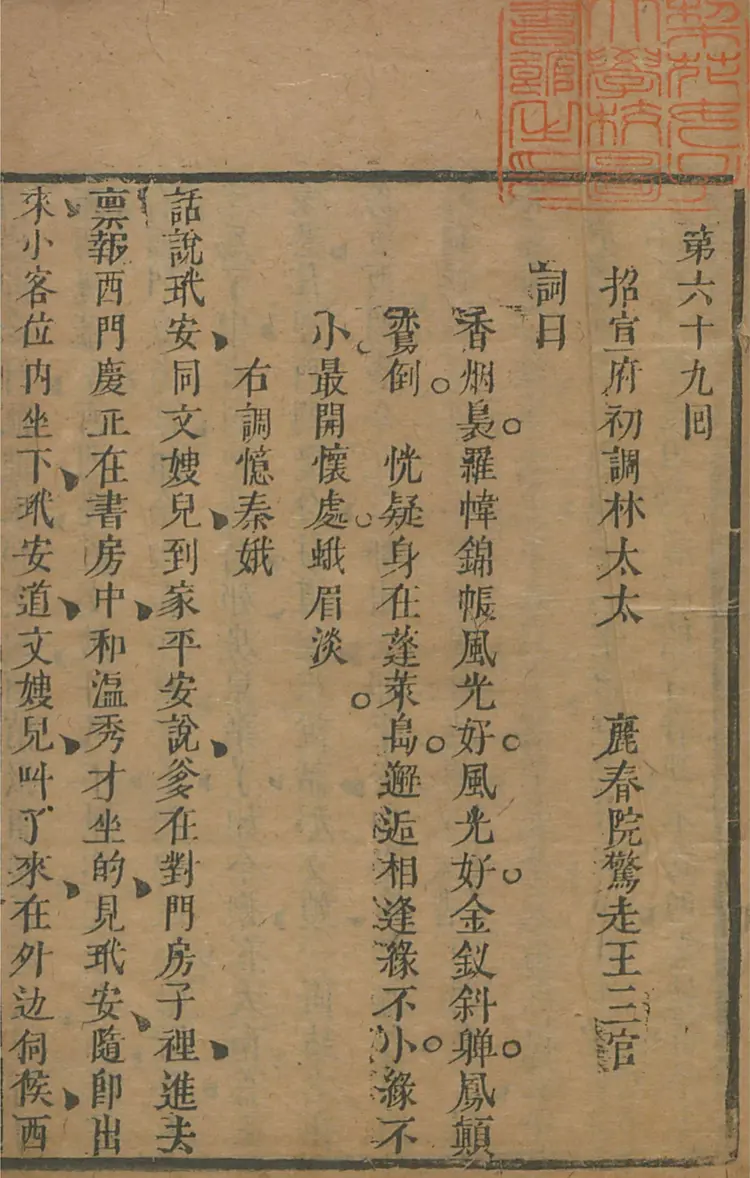 第六十九回
招宣府初調林太太　麗春院驚走王三官
詞曰
香烟裊羅幃錦帳風光好風光好金釵斜軃鳳顛
鸞倒　恍疑身在蓬萊島邂逅相逢緣不小緣不
小最開懷處蛾眉淡
右調憶秦娥
話說玳安同文嫂兒到家平安說爹在對門房子裡進去
禀報西門慶正在書房中和溫秀才坐的見玳安隨即出
來小客位內坐下玳安道文嫂兒叫了來在外边伺候西